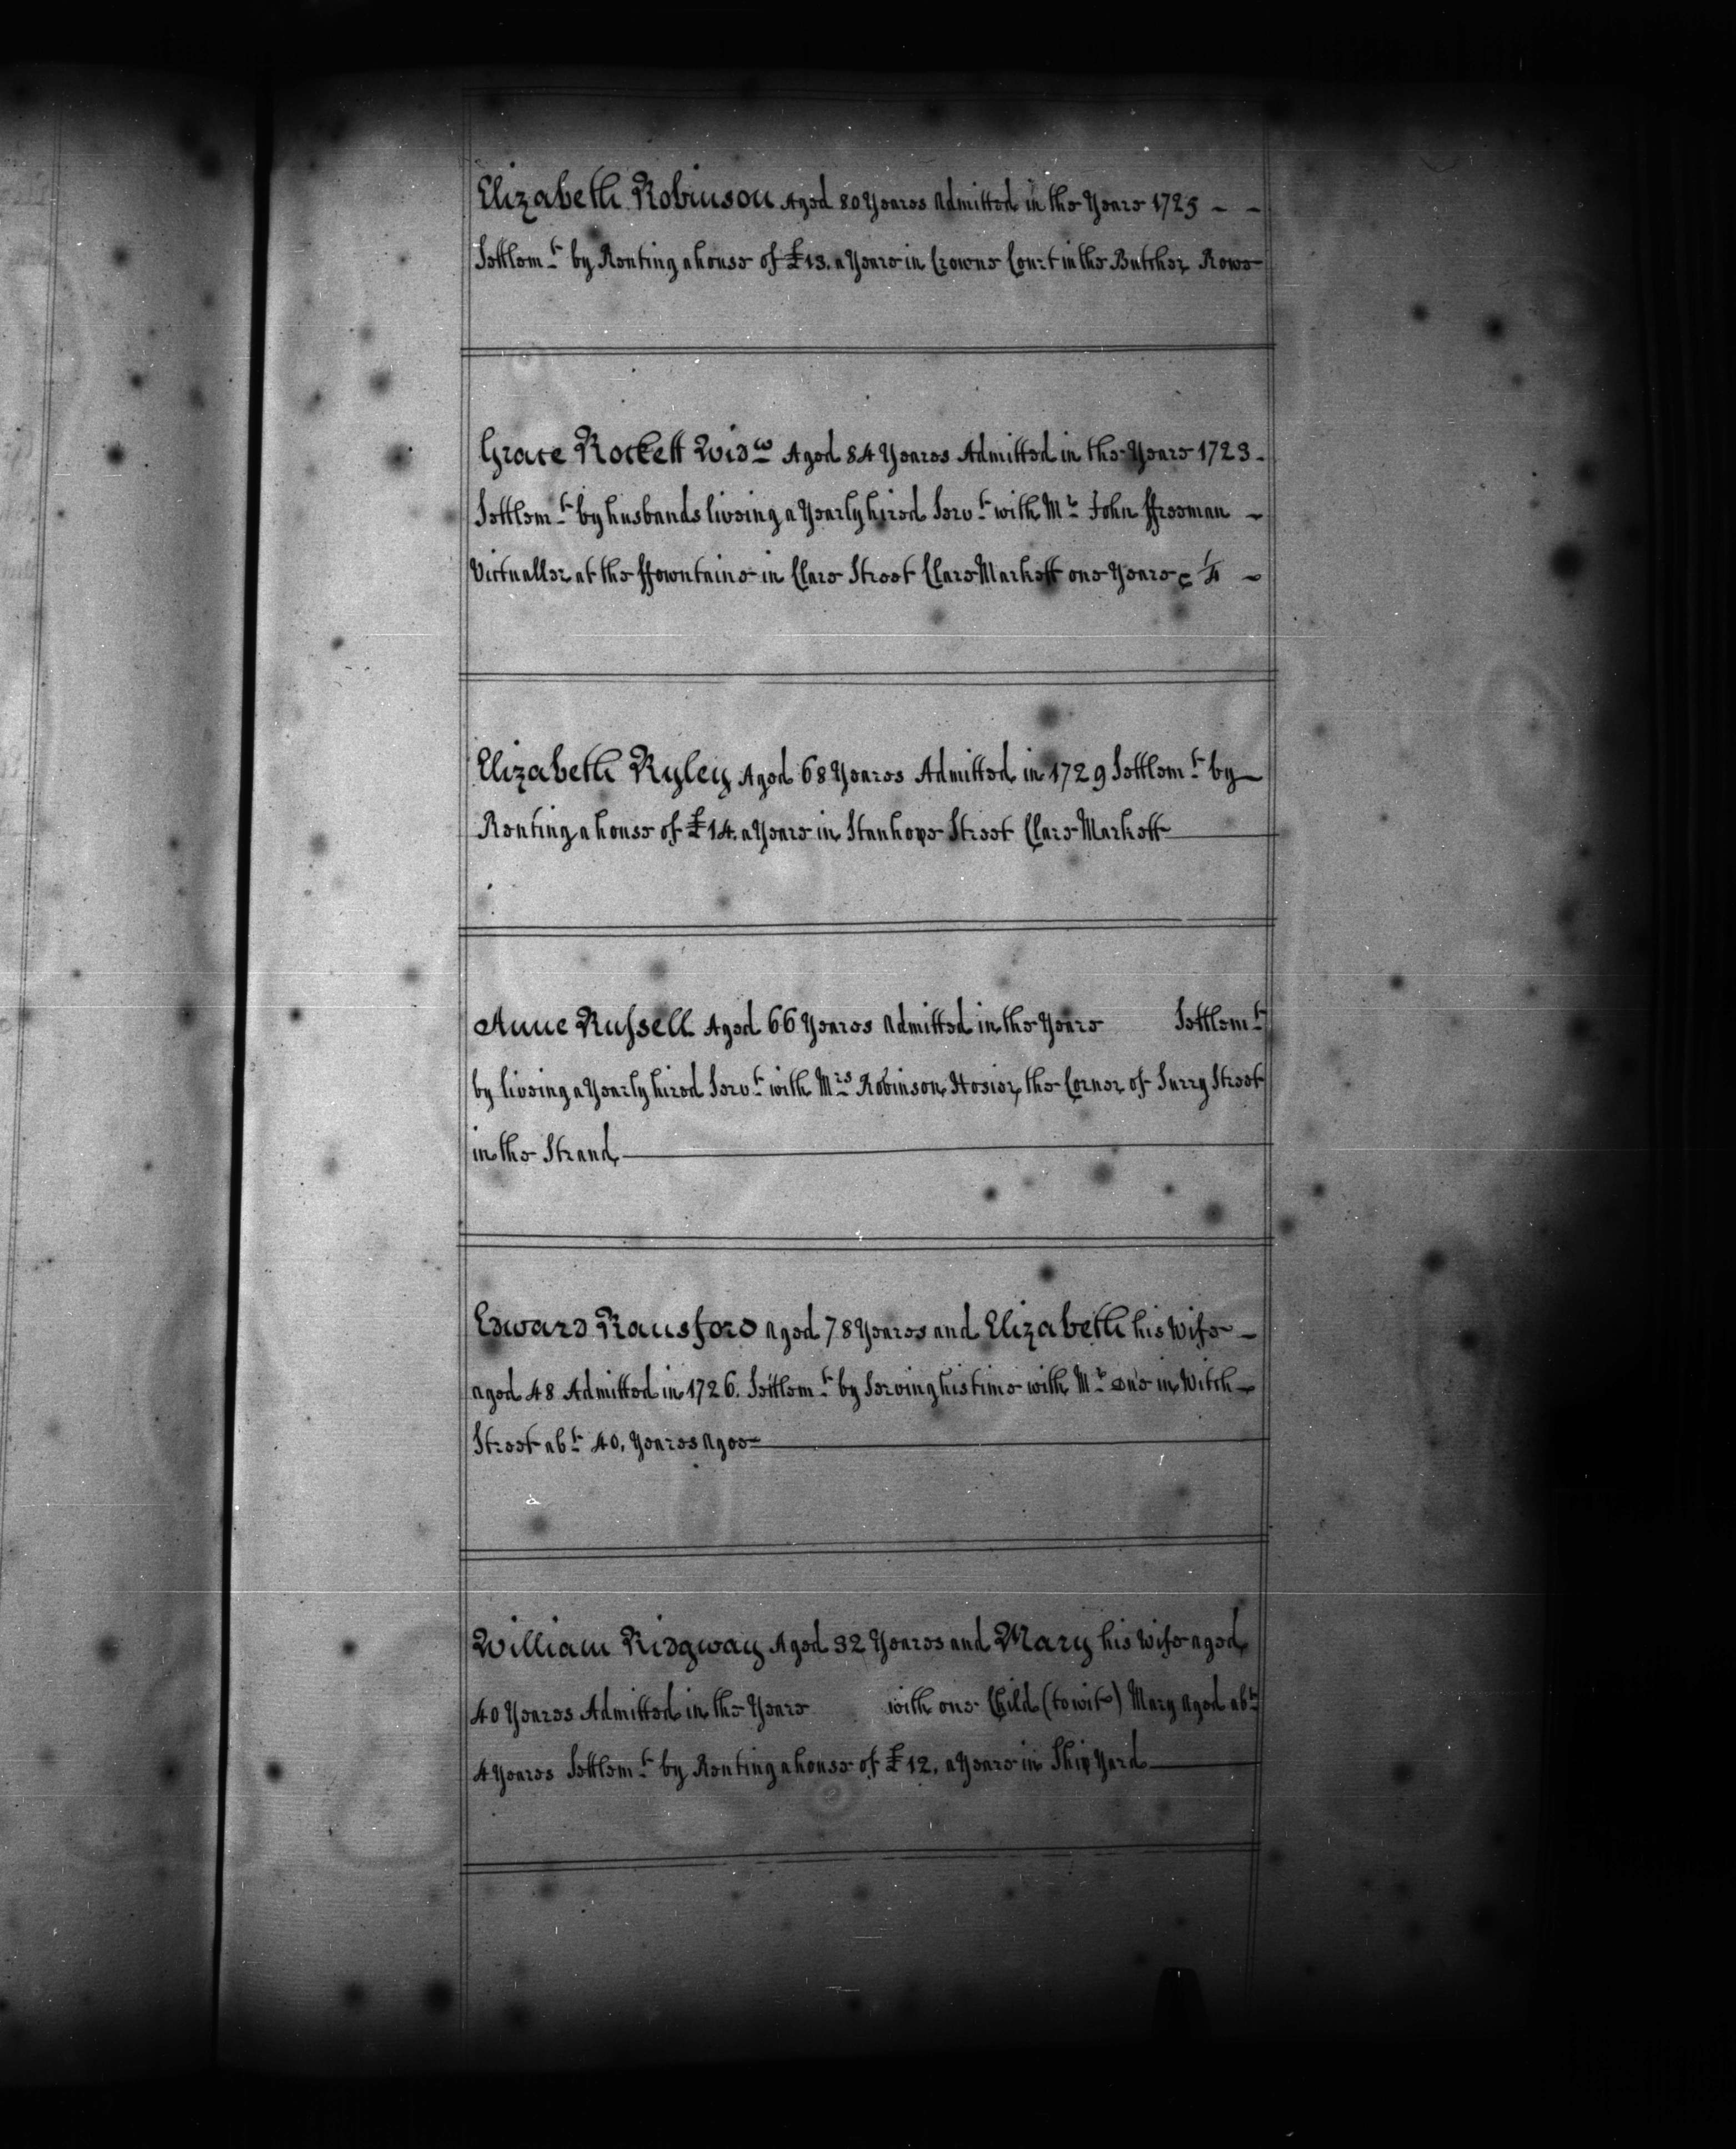 Elizabeth Robinson Aged 80 Yeares Admitted in the Yeare 1725 - -
Settlem:t by Renting a house of £13. a Yeare in Crowne Court in the Butcher Rowe
Grace Rockett Widw Aged 84 Yeares Admitted in the Yeare 1723 -
Settlem:t by husbands liveing a Yearly hired Serv:t with Mr John ffreeman -
Victualler at the ffowntaine in Clare Street Clare Markett one Yeare & 1/4 -
Elizabeth Ryley Aged 68 Yeares Admitted in 1729 Settlem:t by
Renting a house of £14. a Yeare in Stanhope Street Clare Markett
Anne Russell Aged 66 Yeares Admitted in the Yeare Settlem:t
by liveing a Yearly hired Serv:t with Mrs Robinson Hosier, the Corner of Surry Street
in the Strand
Edward Ransford Aged 78 Yeares and Elizabeth his Wife
aged 48 Admitted in 1726. Settlem:t by Serving his time with Mr in Witch
Street ab:t 40, Yeares Agoe
William Ridgway Aged 32 Yeares and Mary his Wife aged
40 Yeares Admitted in the Yeare with one Child (to wit) Mary Aged ab:t
4 Yeares Settlem:t by Renting a house of £12. a Yeare in Ship Yard